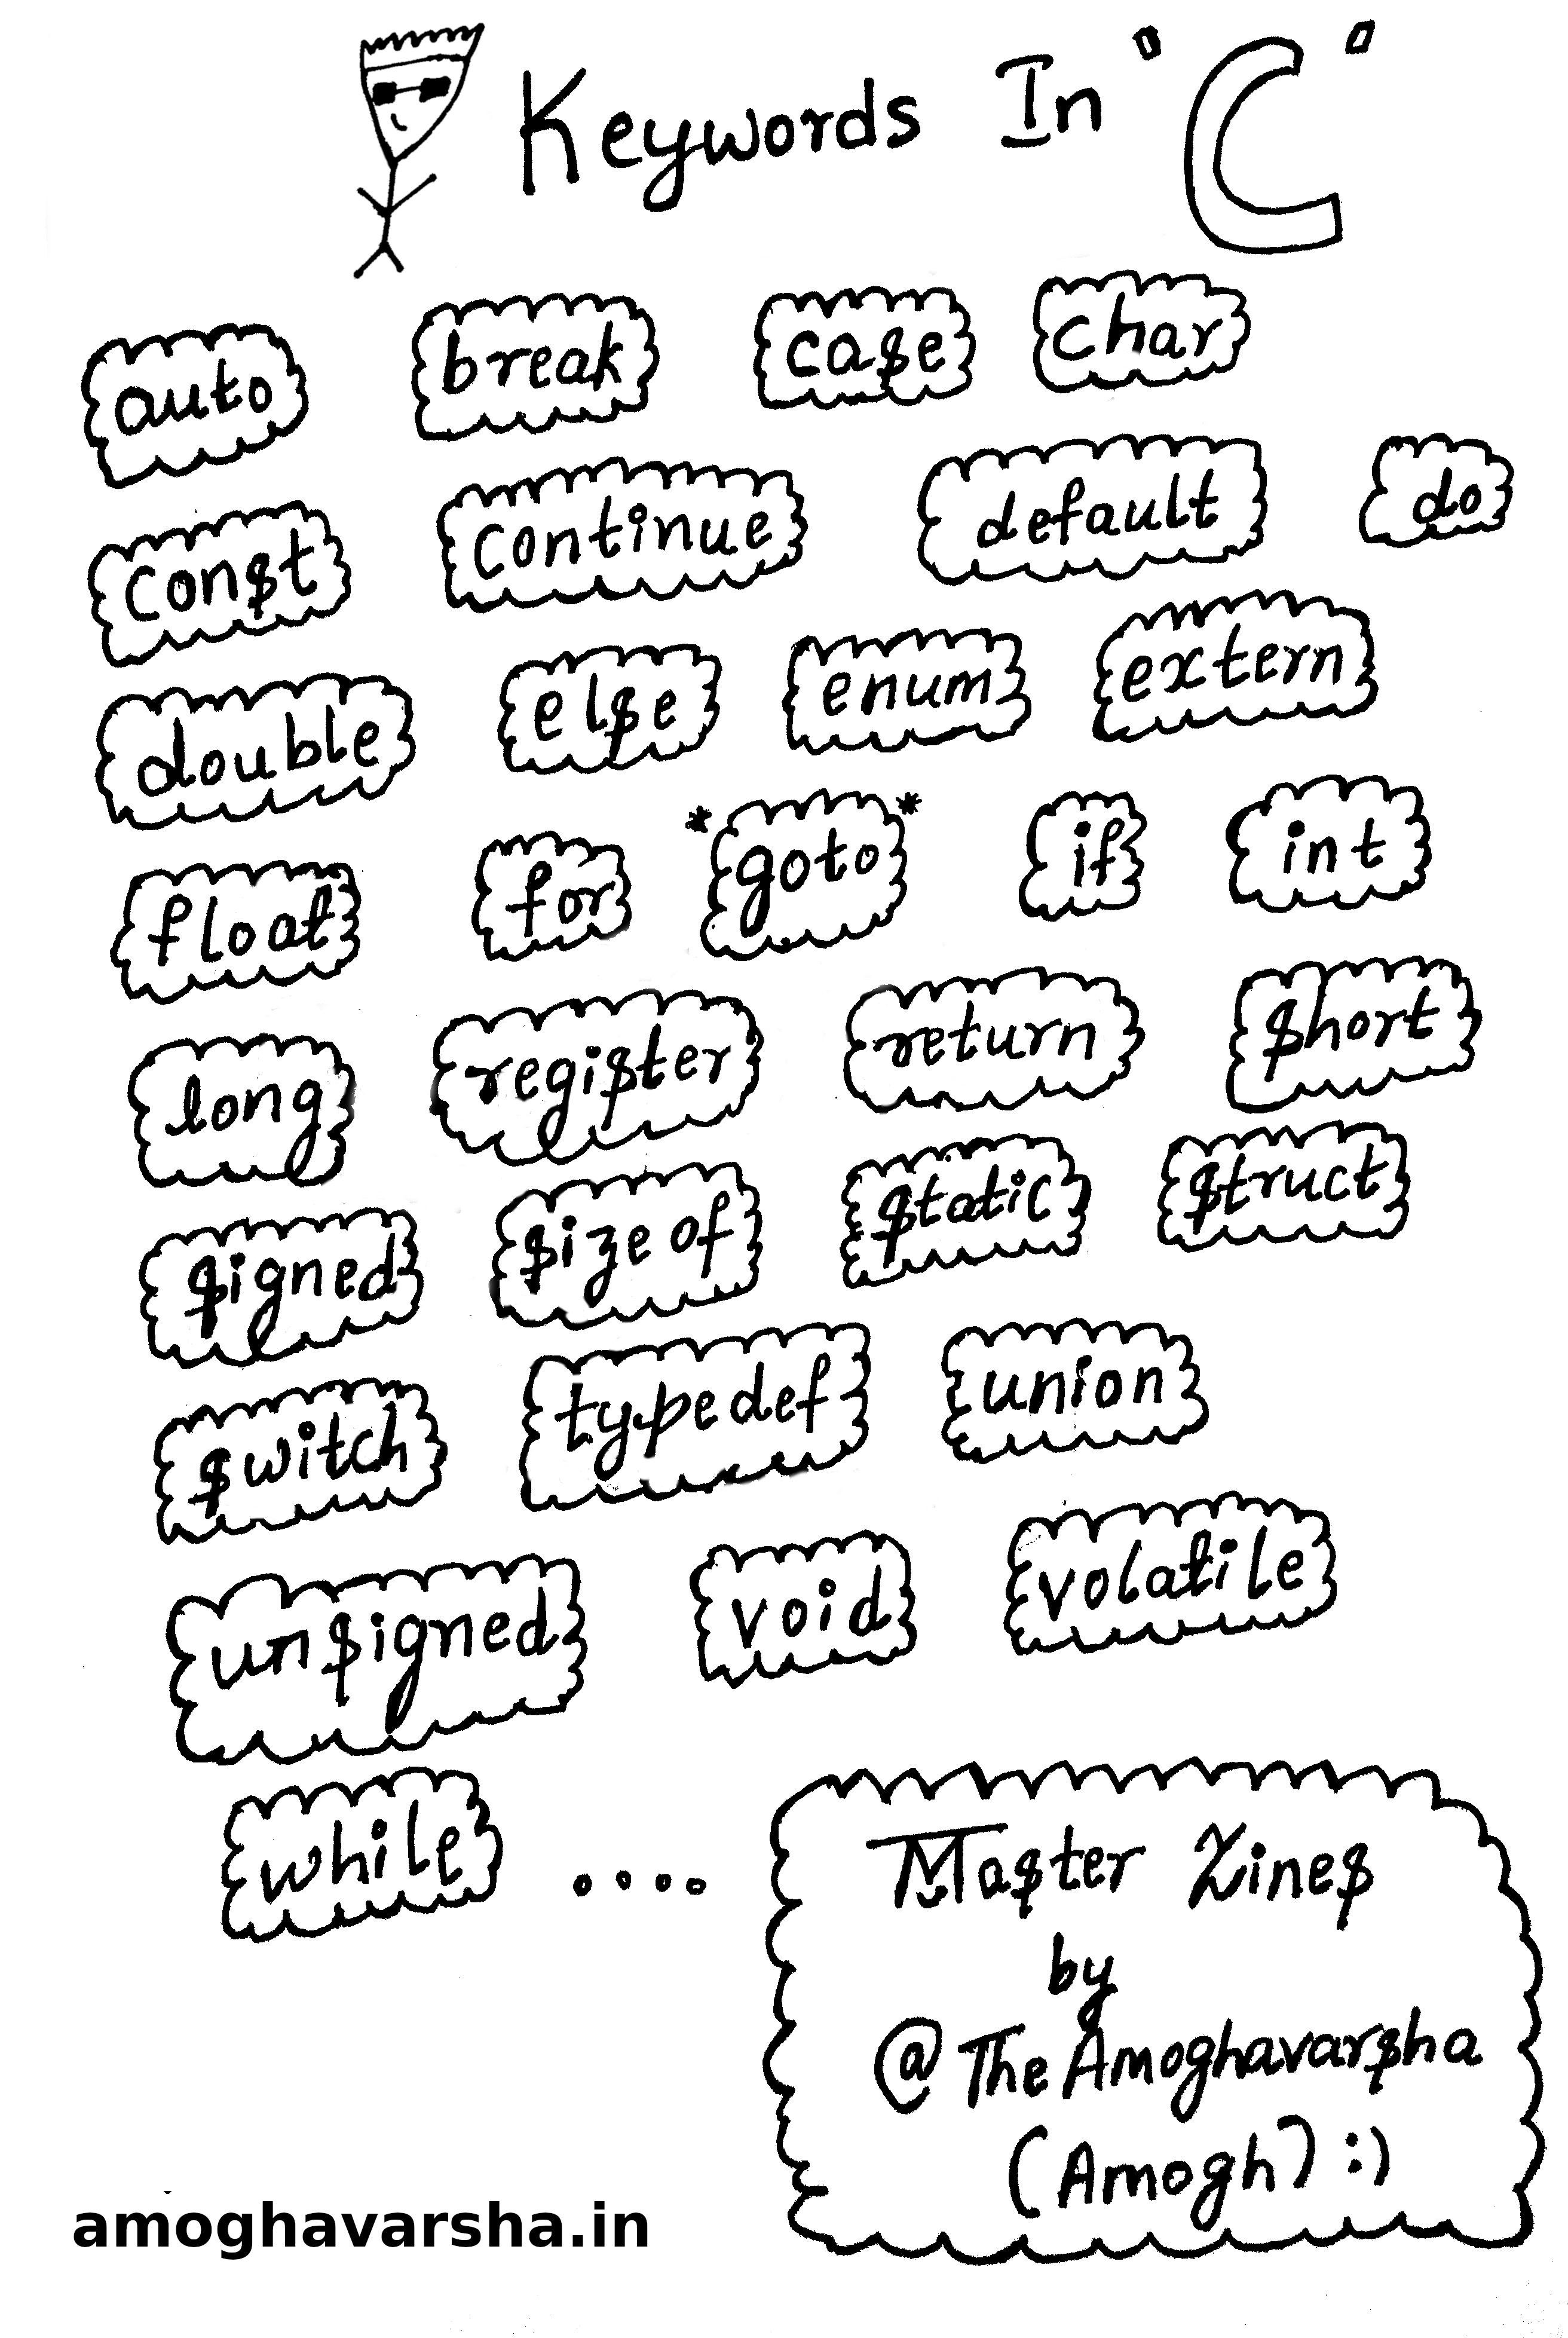 Keywords In "C"
auto break case char
const continue default do
double else enum extern
float for *goto* if int
long register return short
signed sizeof static struct
switch typedef union
unsigned void volatile
while ....
Master Zines
by
@TheAmoghavarsha
(Amogh) :)
amoghavarsha.in